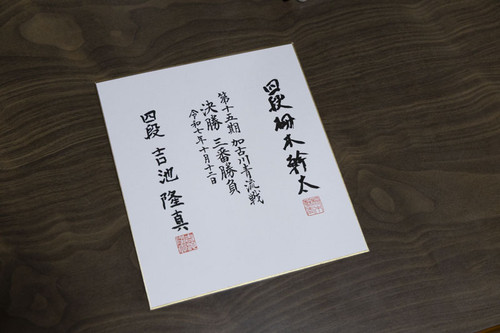 四段 柵木幹太
第十五期 加古川青流戦
決勝 三番勝負
令和七年十月十二日
四段 吉池隆真